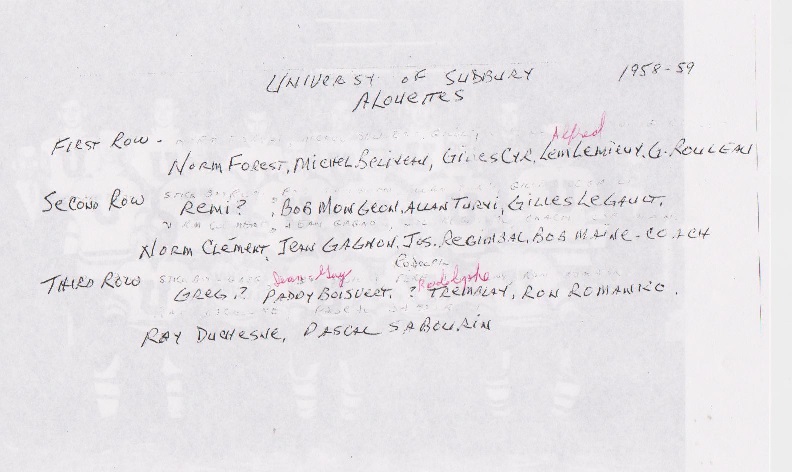 UNIVERSTY OF SUDBURY 1958-59
ALOUETTES
Alfred
FIRST ROW - NORM FOREST, MICHEL BELIVEAU, GILLES CYR, LEM LEMIEUX, G. ROULEAU
SECOND ROW REMI?, BOB MONGEON, ALLAN TURVI, GILLES LEGAULT,
NORM CLÉMENT, JEAN GAGNON, JOS. REGIMBAL, BOB MAINE - COACH
Jean Guy Rodolphe
THIRD ROW GREG ? PADDY BOISVERT, ? TREMBLAY, RON ROMANKO.
RAY DUCHESNE, PASCAL SABOURIN